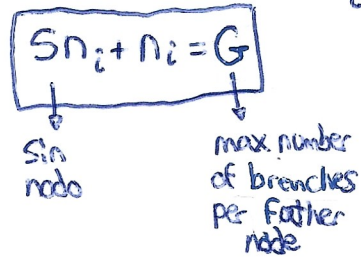 Sn_i + n_i = G
sin
nodo
max number
of brenches
per Father
node